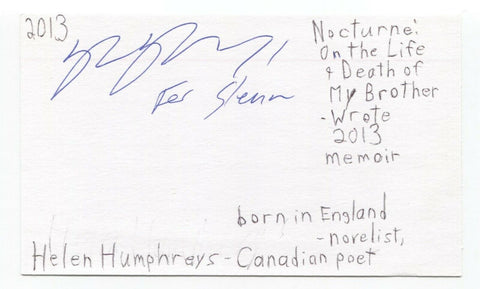 2013
For Glenn
Nocturne:
On the Life
& Death of
My Brother
-Wrote
2013
memoir
born in England
-novelist,
Helen Humphreys - Canadian poet